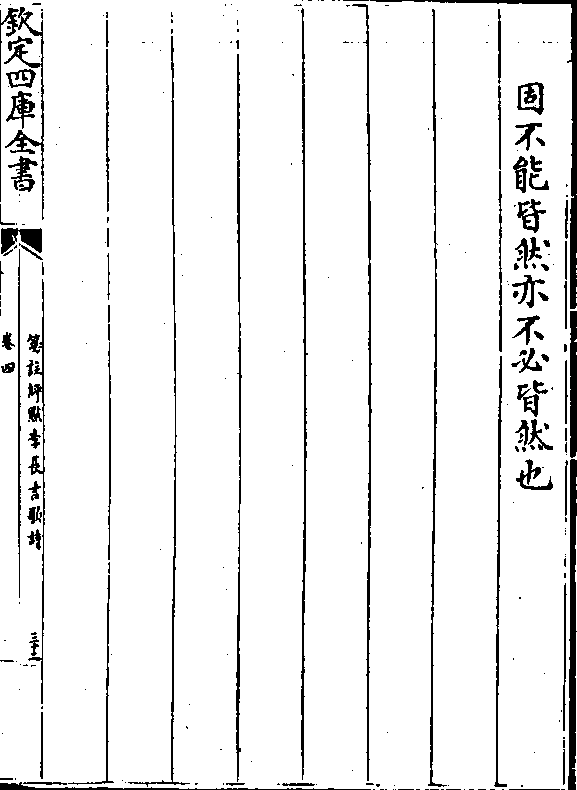 固不能皆然亦不必皆然也
欽定四庫全書
箋註評點李長吉歌詩
卷四
三十二